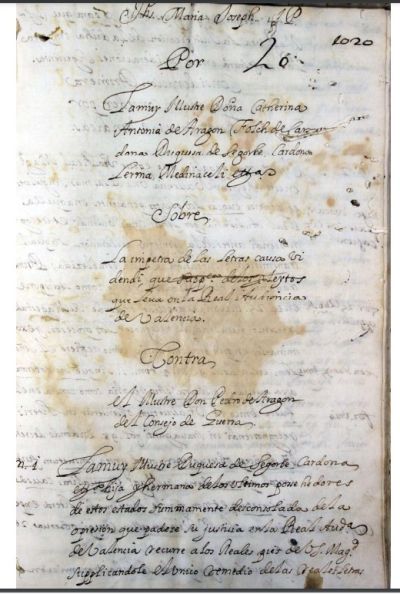 Jhs. Maria Joseph
1020
Por 26
La muy Illustre Doña Catherina
Antonia de Aragon Folch de Car
dona Duquesa de Segorbe, Cardona
Lerma, Medinaceli etta
Sobre
La impetra de las Letras causa vi
dendi que de los
que lleva en la Real Audiencia
de Valencia.
Contra
El Illustre Don Pedro de Aragon
del Consejo de Guerra.
n. 1. La muy Illustre Duquesa de Segorbe, Cardona
Hija y hermana de los ultimos posehedores
de estos estados summamente desconsolada de la
opresion que padece su justicia en la Real Auda
de Valencia recurre a los Reales pies de V. S. Magd
supplicandole el unico remedio de las Reales letras